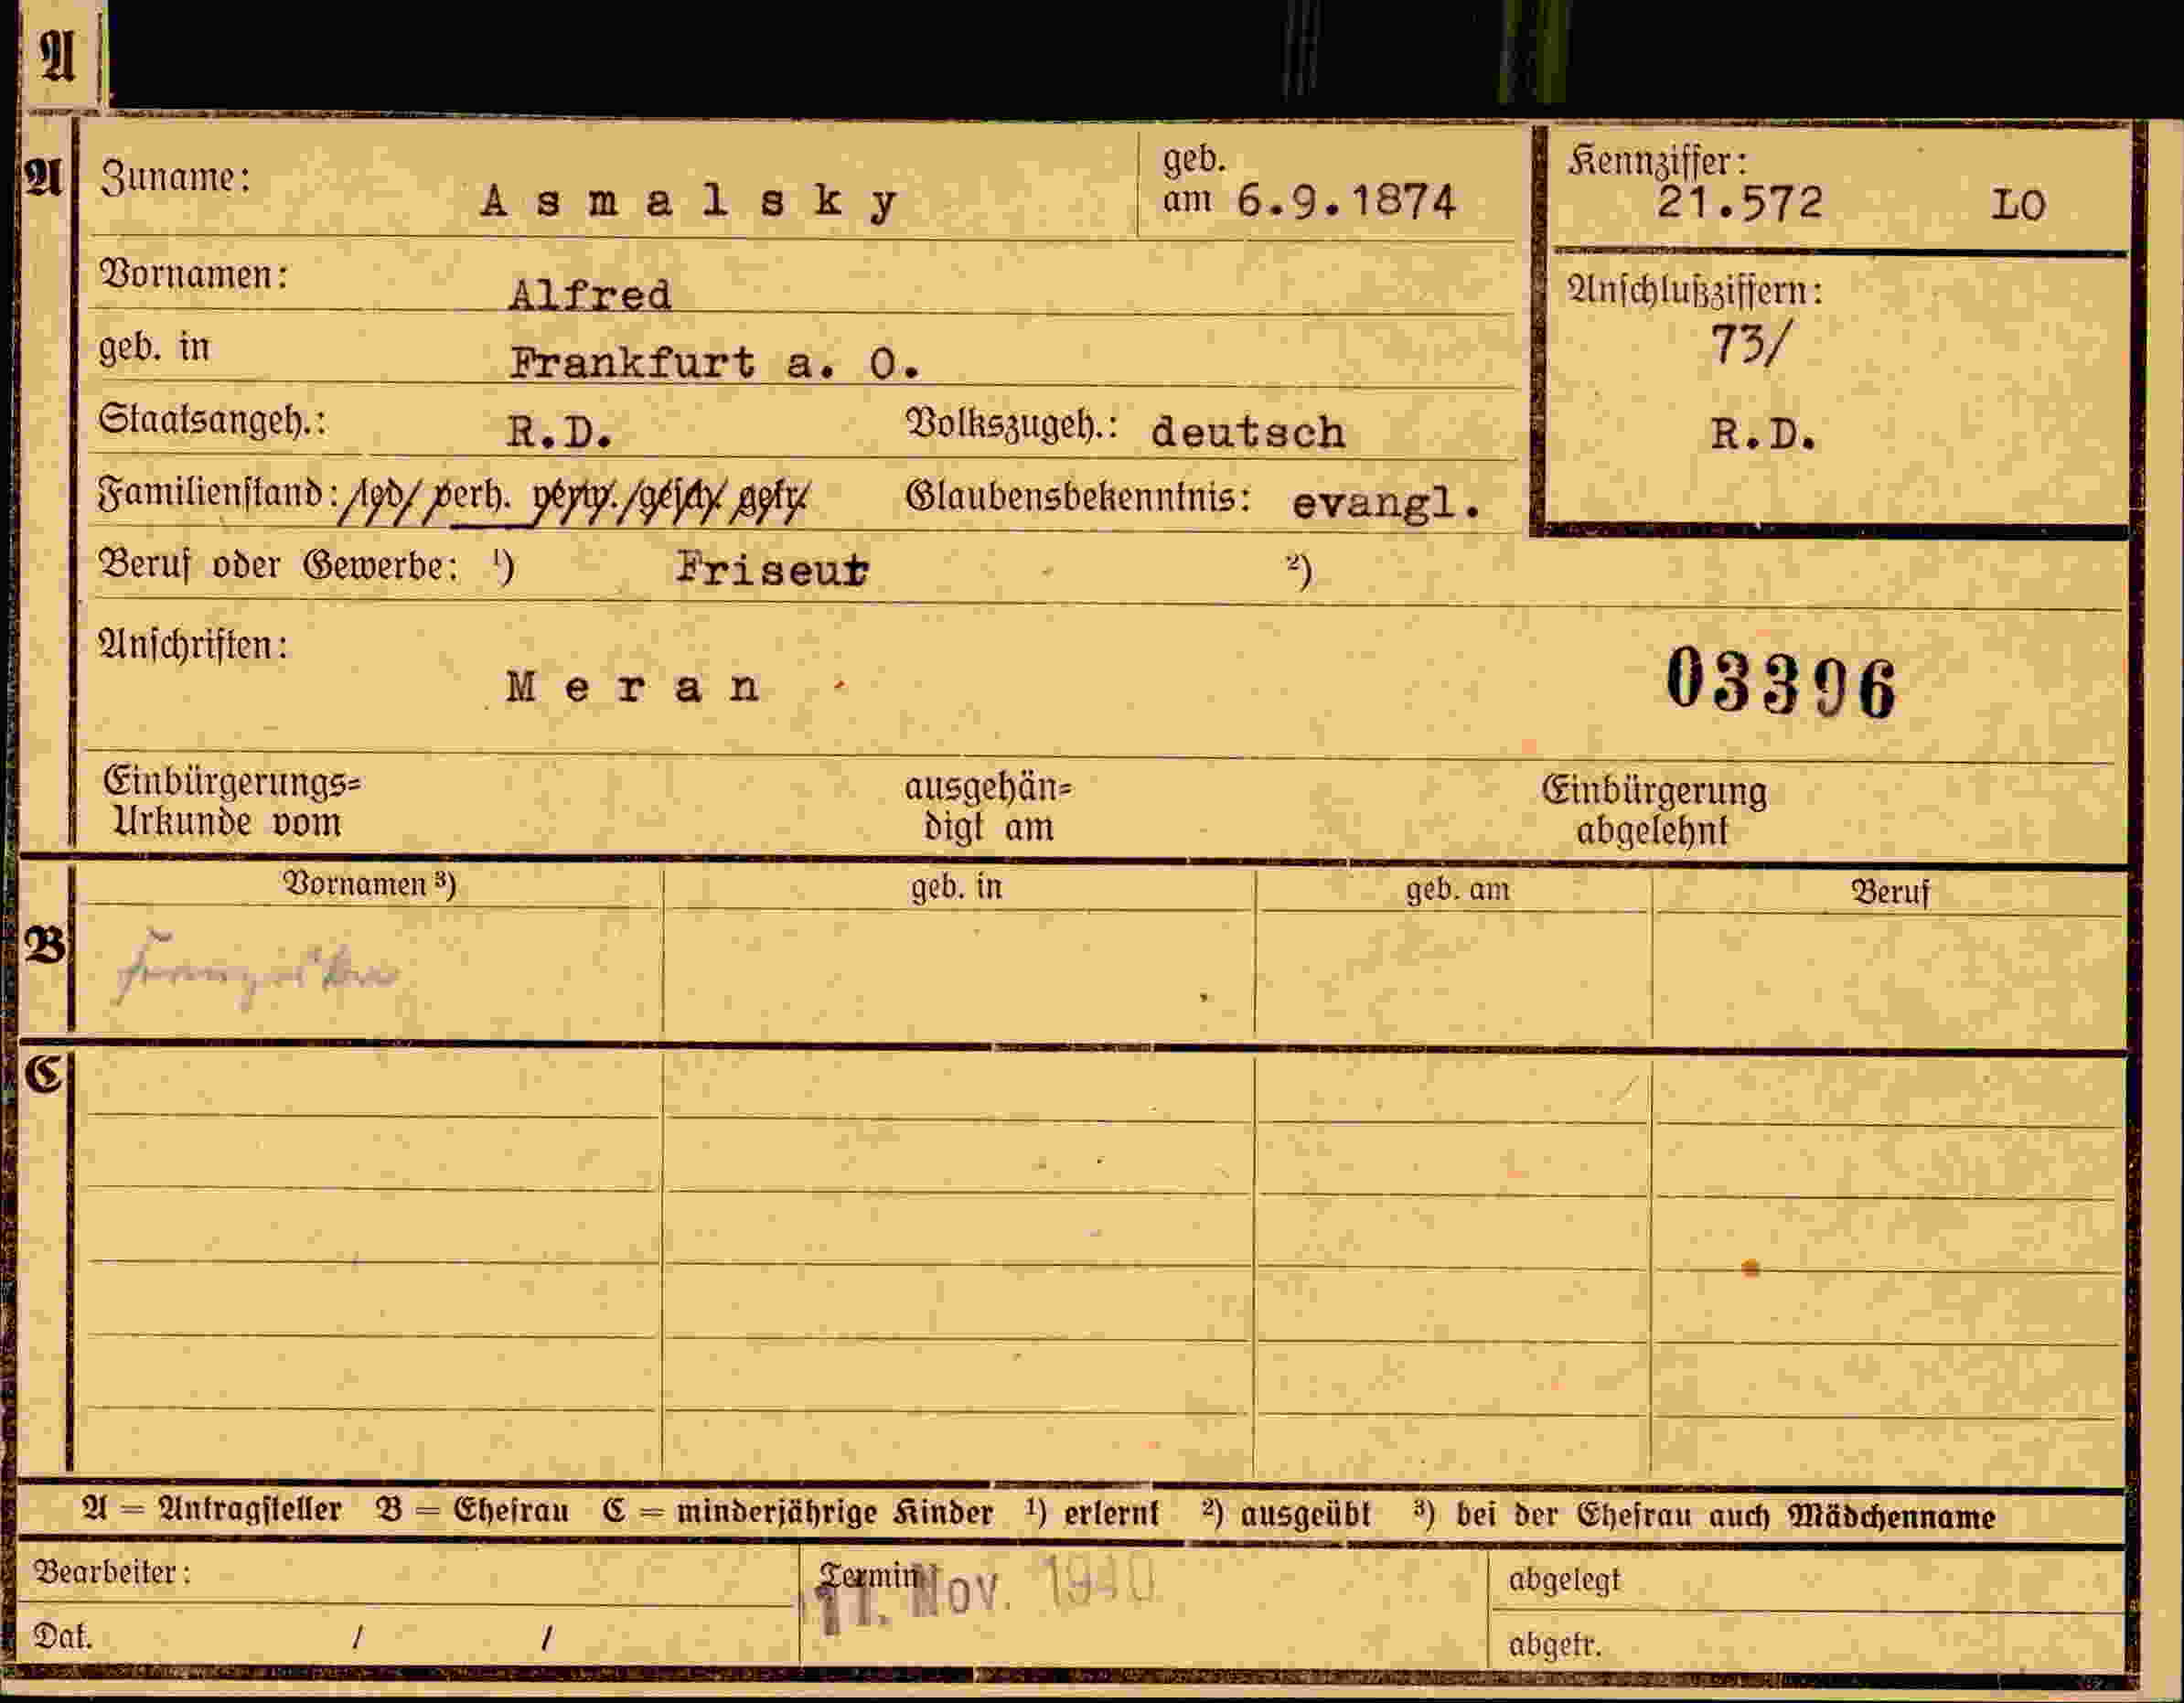 A
A
Zuname: Asmalsky geb. am 6.9.1874
Kennziffer: 21.572 LO
Vornamen: Alfred
Anschlußziffern:
73/
R.D.
geb. in Frankfurt a. O.
Staatsangeh.: R.D. Volkszugeh.: deutsch
Familienstand: led. verh. verw. gesch. getr. Glaubensbekenntnis: evangl.
Beruf oder Gewerbe: ¹) Friseur ²)
Anschriften:
Meran
03396
Einbürgerungs=
Urkunde vom
ausgehän=
digt am
Einbürgerung
abgelehnt
Vornamen ³) geb. in geb. am Beruf
B
Franziska
C
A = Antragsteller B = Ehefrau C = minderjährige Kinder ¹) erlernt ²) ausgeübt ³) bei der Ehefrau auch Mädchenname
Bearbeiter:
Termin
11. Nov. 1940
abgelegt
Dat. / /
abgetr.